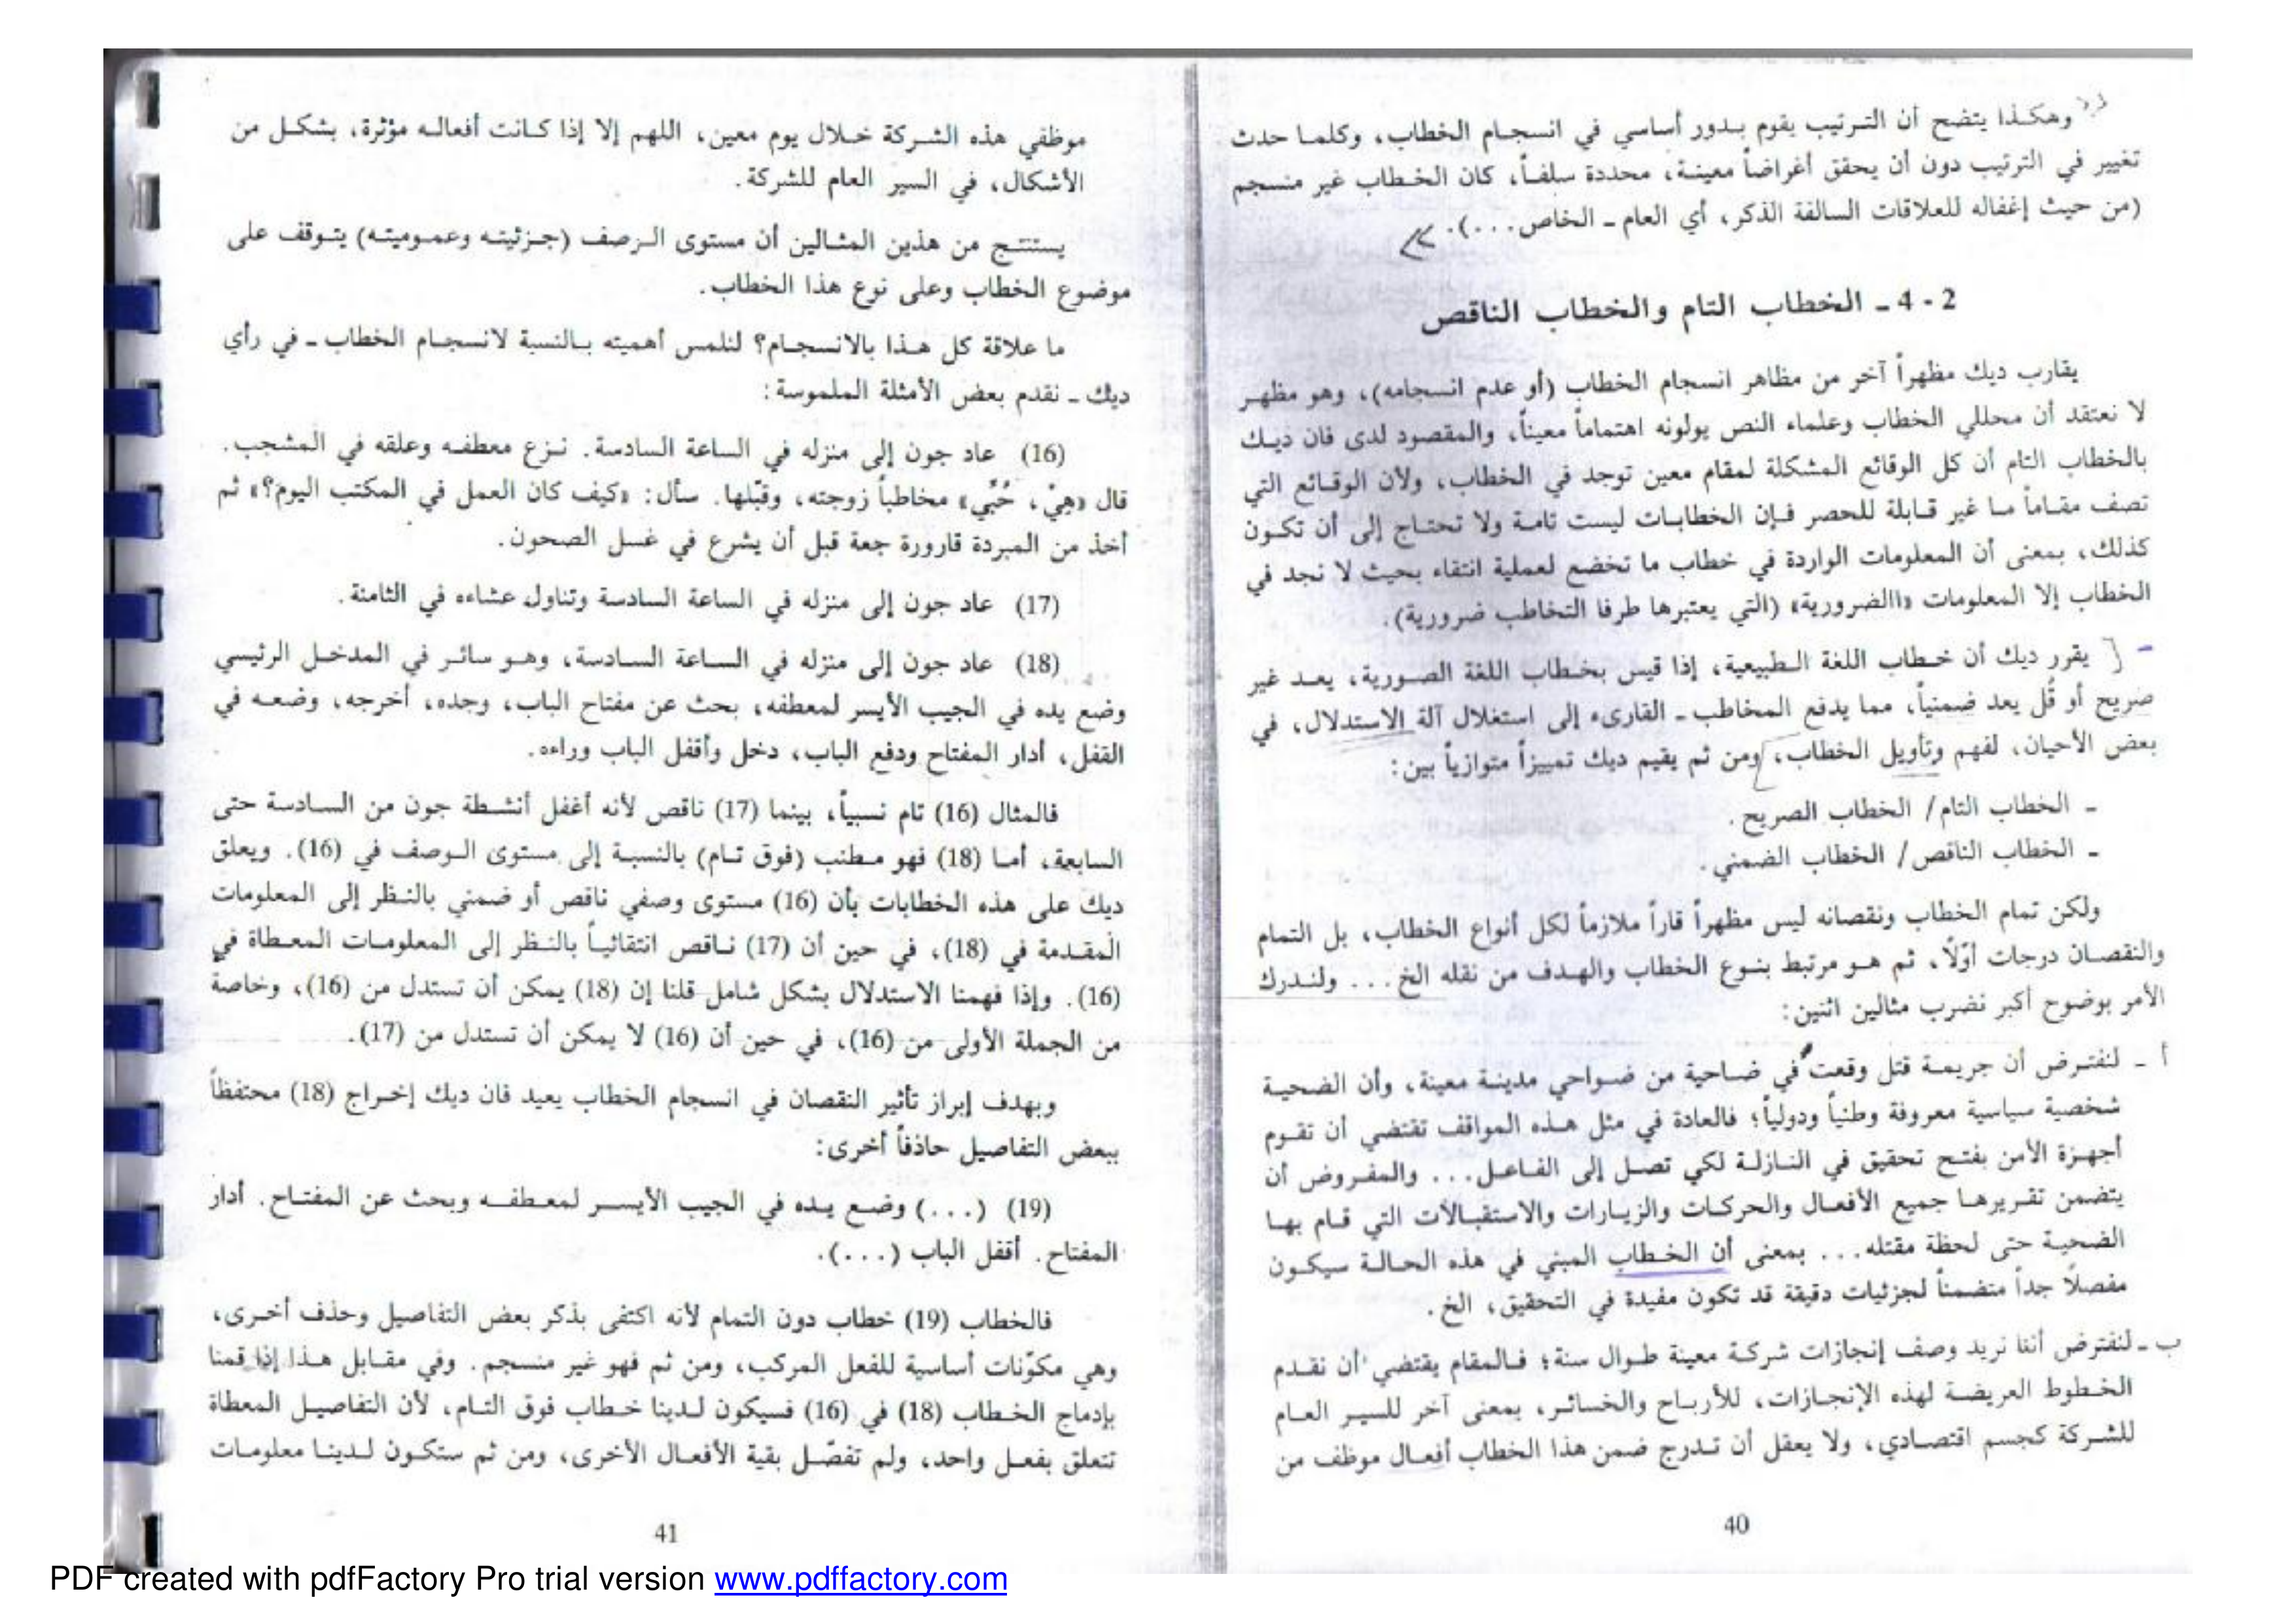 وهكذا يتضح أن الترتيب يقوم بدور أساسي في انسجام الخطاب، وكلما حدث
تغيير في الترتيب دون أن يحقق أغراضاً معينة، محددة سلفاً، كان الخطاب غير منسجم
(من حيث إغفاله للعلاقات السالفة الذكر، أي العام ـ الخاص...).
2 - 4 ـ الخطاب التام والخطاب الناقص
يقارب ديك مظهراً آخر من مظاهر انسجام الخطاب (أو عدم انسجامه)، وهو مظهر
لا نعتقد أن محللي الخطاب وعلماء النص يولونه اهتماماً معيناً، والمقصود لدى فان ديك
بالخطاب التام أن كل الوقائع المشكلة لمقام معين توجد في الخطاب، ولأن الوقائع التي
تصف مقاماً ما غير قابلة للحصر فإن الخطابات ليست تامة ولا تحتاج إلى أن تكون
كذلك، بمعنى أن المعلومات الواردة في خطاب ما تخضع لعملية انتقاء بحيث لا نجد في
الخطاب إلا المعلومات «االضرورية» (التي يعتبرها طرفا التخاطب ضرورية).
يقرر ديك أن خطاب اللغة الطبيعية، إذا قيس بخطاب اللغة الصورية، يعد غير
صريح أو قُل يعد ضمنياً، مما يدفع المخاطب ـ القارىء إلى استغلال آلة الاستدلال، في
بعض الأحيان، لفهم وتأويل الخطاب، ومن ثم يقيم ديك تمييزاً متوازياً بين:
ـ الخطاب التام/ الخطاب الصريح.
ـ الخطاب الناقص/ الخطاب الضمني.
ولكن تمام الخطاب ونقصانه ليس مظهراً قاراً ملازماً لكل أنواع الخطاب، بل التمام
والنقصان درجات أوّلاً، ثم هو مرتبط بنوع الخطاب والهدف من نقله الخ... ولندرك
الأمر بوضوح أكبر نضرب مثالين اثنين:
أ ـ لنفترض أن جريمة قتل وقعت في ضاحية من ضواحي مدينة معينة، وأن الضحية
شخصية سياسية معروفة وطنياً ودولياً؛ فالعادة في مثل هذه المواقف تقتضي أن تقوم
أجهزة الأمن بفتح تحقيق في النازلة لكي تصل إلى الفاعل... والمفروض أن
يتضمن تقريرها جميع الأفعال والحركات والزيارات والاستقبالات التي قام بها
الضحية حتى لحظة مقتله... بمعنى أن الخطاب المبني في هذه الحالة سيكون
مفصلاً جداً متضمناً لجزئيات دقيقة قد تكون مفيدة في التحقيق، الخ.
ب ـ لنفترض أننا نريد وصف إنجازات شركة معينة طوال سنة؛ فالمقام يقتضي أن نقدم
الخطوط العريضة لهذه الإنجازات، للأرباح والخسائر، بمعنى آخر للسير العام
للشركة كجسم اقتصادي، ولا يعقل أن تدرج ضمن هذا الخطاب أفعال موظف من
40
موظفي هذه الشركة خلال يوم معين، اللهم إلا إذا كانت أفعاله مؤثرة، بشكل من
الأشكال، في السير العام للشركة.
يستنتج من هذين المثالين أن مستوى الرصف (جزئيته وعموميته) يتوقف على
موضوع الخطاب وعلى نوع هذا الخطاب.
ما علاقة كل هذا بالانسجام؟ لنلمس أهميته بالنسبة لانسجام الخطاب ـ في رأي
ديك ـ نقدم بعض الأمثلة الملموسة:
(16) عاد جون إلى منزله في الساعة السادسة. نزع معطفه وعلقه في المشجب.
قال «هِيْ، حُبِّي» مخاطباً زوجته، وقبّلها. سأل: «كيف كان العمل في المكتب اليوم؟» ثم
أخذ من المبردة قارورة جعة قبل أن يشرع في غسل الصحون.
(17) عاد جون إلى منزله في الساعة السادسة وتناول عشاءه في الثامنة.
(18) عاد جون إلى منزله في الساعة السادسة، وهو سائر في المدخل الرئيسي
وضع يده في الجيب الأيسر لمعطفه، بحث عن مفتاح الباب، وجده، أخرجه، وضعه في
القفل، أدار المفتاح ودفع الباب، دخل وأقفل الباب وراءه.
فالمثال (16) تام نسبياً، بينما (17) ناقص لأنه أغفل أنشطة جون من السادسة حتى
السابعة، أما (18) فهو مطنب (فوق تام) بالنسبة إلى مستوى الوصف في (16). ويعلق
ديك على هذه الخطابات بأن (16) مستوى وصفي ناقص أو ضمني بالنظر إلى المعلومات
المقدمة في (18)، في حين أن (17) ناقص انتقائياً بالنظر إلى المعلومات المعطاة في
(16). وإذا فهمنا الاستدلال بشكل شامل قلنا إن (18) يمكن أن تستدل من (16)، وخاصة
من الجملة الأولى من (16)، في حين أن (16) لا يمكن أن تستدل من (17).
وبهدف إبراز تأثير النقصان في انسجام الخطاب يعيد فان ديك إخراج (18) محتفظاً
ببعض التفاصيل حاذفاً أخرى:
(19) (...) وضع يده في الجيب الأيسر لمعطفه وبحث عن المفتاح. أدار
المفتاح. أقفل الباب (...).
فالخطاب (19) خطاب دون التمام لأنه اكتفى بذكر بعض التفاصيل وحذف أخرى،
وهي مكوّنات أساسية للفعل المركب، ومن ثم فهو غير منسجم. وفي مقابل هذا إذا قمنا
بإدماج الخطاب (18) في (16) فسيكون لدينا خطاب فوق التام، لأن التفاصيل المعطاة
تتعلق بفعل واحد، ولم تفصّل بقية الأفعال الأخرى، ومن ثم ستكون لدينا معلومات
41
PDF created with pdfFactory Pro trial version www.pdffactory.com